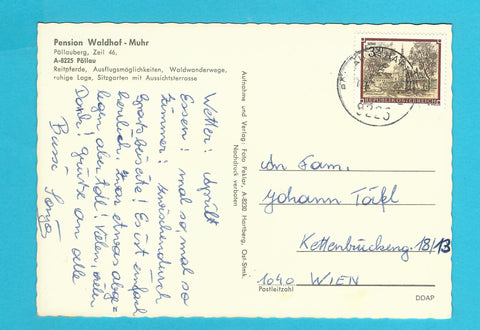 Pension Waldhof - Muhr
Pöllauberg, Zeil 46,
A-8225 Pöllau
Reitpferde, Ausflugsmöglichkeiten, Waldwanderwege,
ruhige Lage, Sitzgarten mit Aussichtsterrasse
Wetter!
Essen! mal so, mal so
Zimmer! zwischendurch
Spatzbesuche! Es ist einfach
herrlich, zwar etwas abge-
legen aber toll! Vielen, vielen
Dank! Grüße an alle
Bussi Sonja
Aufnahme und Verlag: Foto Peklar, A-8230 Hartberg, Ost-Stmk.
Nachdruck verboten
REPUBLIK ÖSTERREICH
8225
An Fam.
Johann
Kettenbrückeng. 18/13
1040 WIEN
Postleitzahl
DDAP